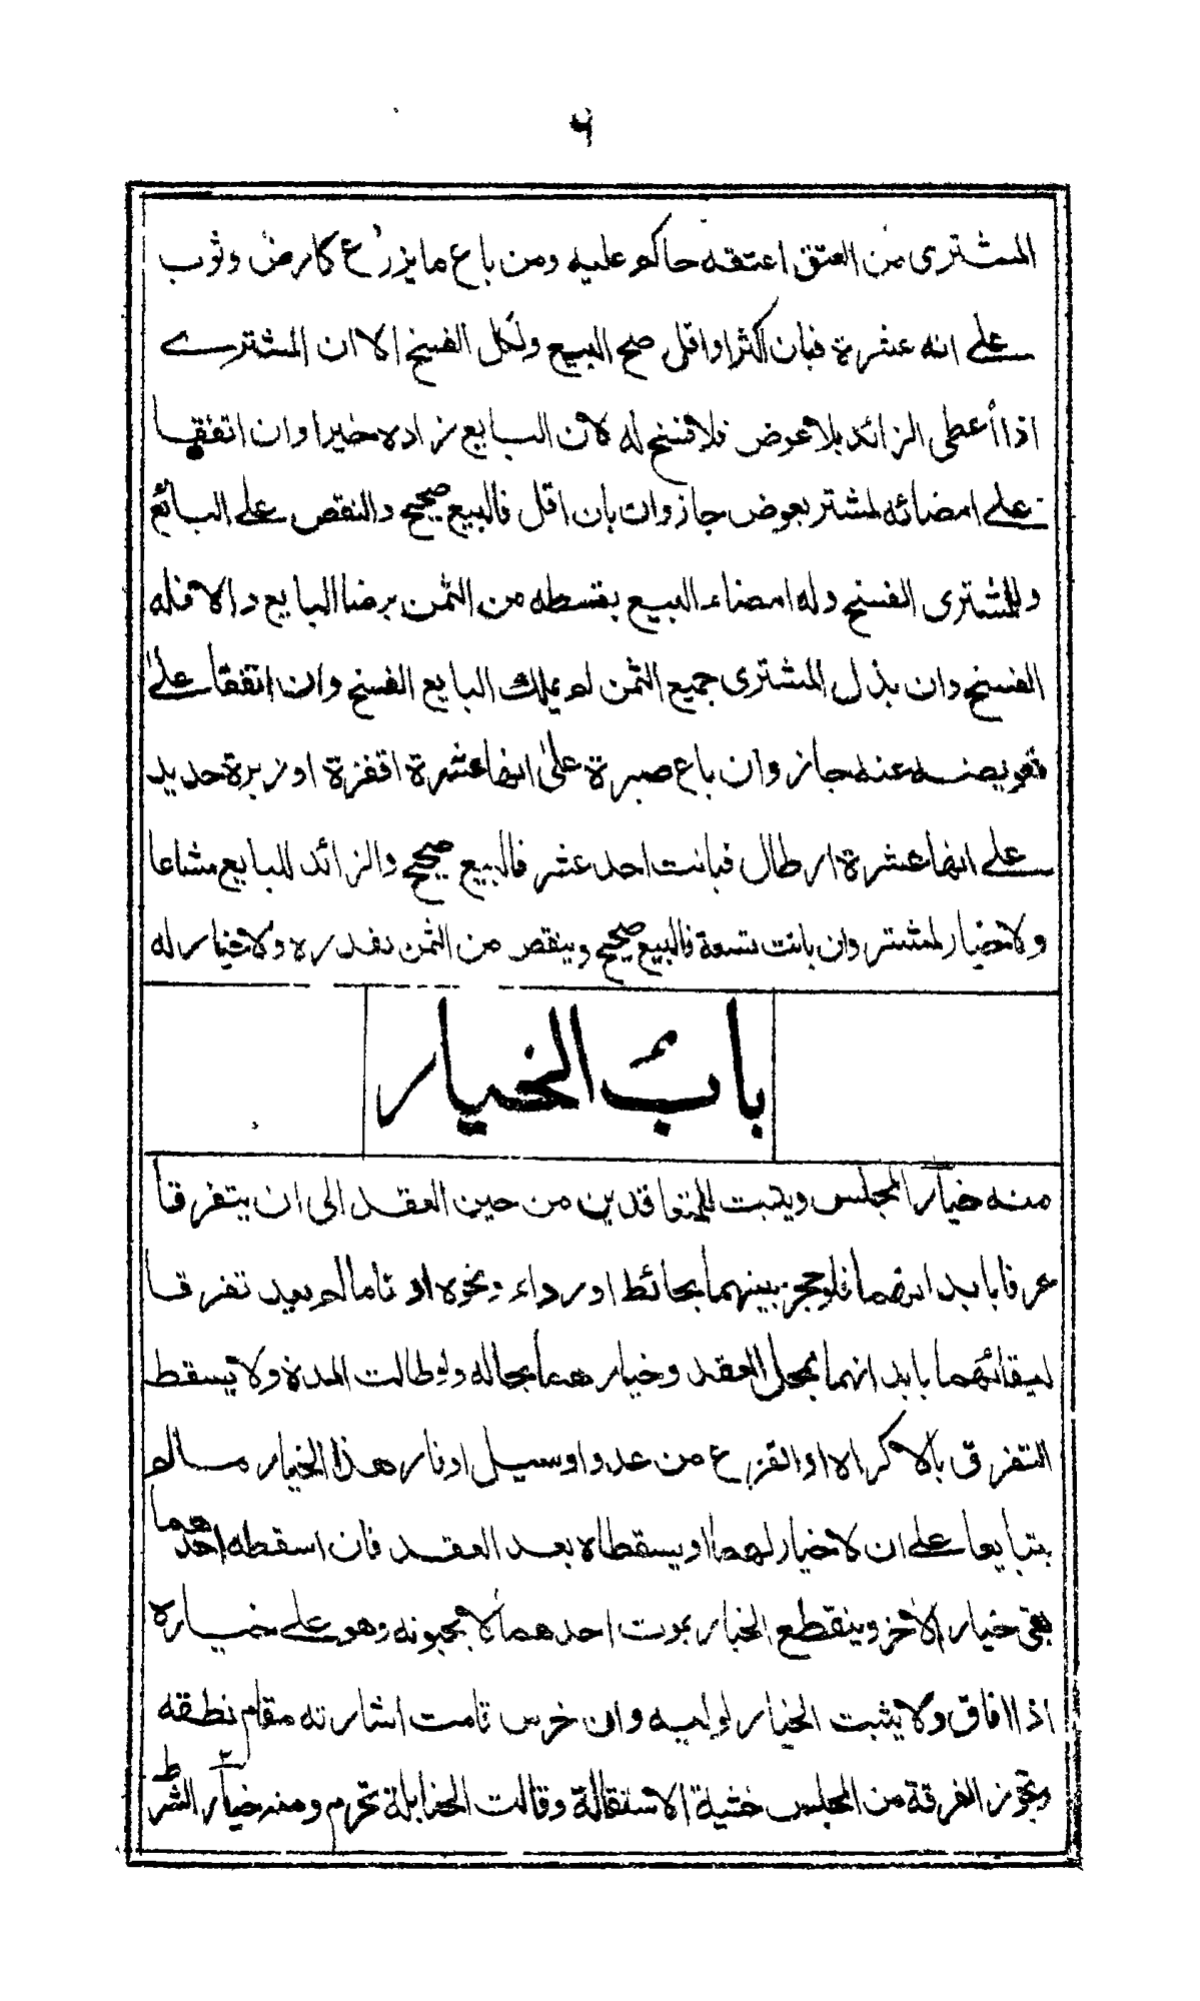 ۶
المشترى من العتق اعتقه حاكم عليه ومن باع ما يزرع كارض وثوب
على انه عشرة فبان اكثر او اقل صح البيع ولكل الفسخ الا ان المشترے
اذا أعطى الزائد بلا عوض فلا فسخ له لان البايع زاده خيرا وان اتفقا
على امضائه لمشتر بعوض جاز وان بان اقل فالبيع صحيح والنقص على البائع
وللمشترى الفسخ وله امضاء البيع بقسطه من الثمن برضا البايع والا فله
الفسخ وان بذل المشترى جميع الثمن لم يملك البايع الفسخ وان اتفقا على
تعويضه عنه جاز وان باع صبرة على انها عشرة اقفزة او زبرة حديد
على انها عشرة ارطال فبانت احد عشر فالبيع صحيح والزائد للبايع مشاعا
ولا خيار لمشتر وان بانت تسعة فالبيع صحيح وينقص من الثمن بقدره ولا خيار له
باب الخيار
منه خيار المجلس ويثبت للمتعاقدين من حين العقد الى ان يتفرقا
عرفا بابدانهما فلو حجز بينهما بحائط او رداء ونحوه او ناما لم يعد تفرقا
لبقائهما بابدانهما بمحل العقد وخيارهما بحاله ولو طالت المدة ولا يسقط
التفرق بالاكراه او الفزع من عدو او سيل او نار هذا الخيار مالم
يتبايعا على ان لا خيار لهما او يسقطاه بعد العقد فان اسقطه احدهما
بقى خيار الأخر وينقطع الخيار بموت احدهما لا بجنونه وهو على خياره
اذا افاق ولا يثبت الخيار لوليه وان خرس قامت اشارته مقام نطقه
وتجوز الفرقة من المجلس خشية الاستقالة وقالت الحنابلة تحرم ومنه خيار الشرط